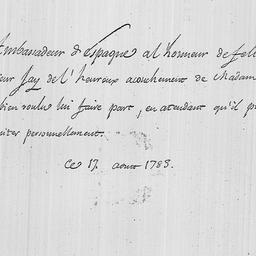 Ambassadeur d'Espagne a l'honneur de feli
eur Jay de l'heureux acouchement de Madam
bien voulu lui faire part, en atendant qu'il p
iter personnellement.
Ce 17. aout 1783.